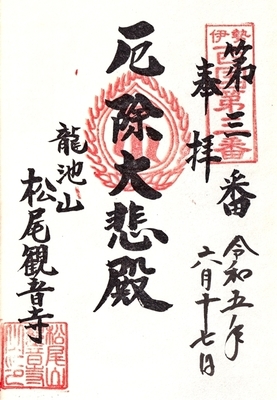 伊勢
西国第三番
第三番
奉拝
厄除大悲殿
龍池山
松尾観音寺
令和五年
六月十七日